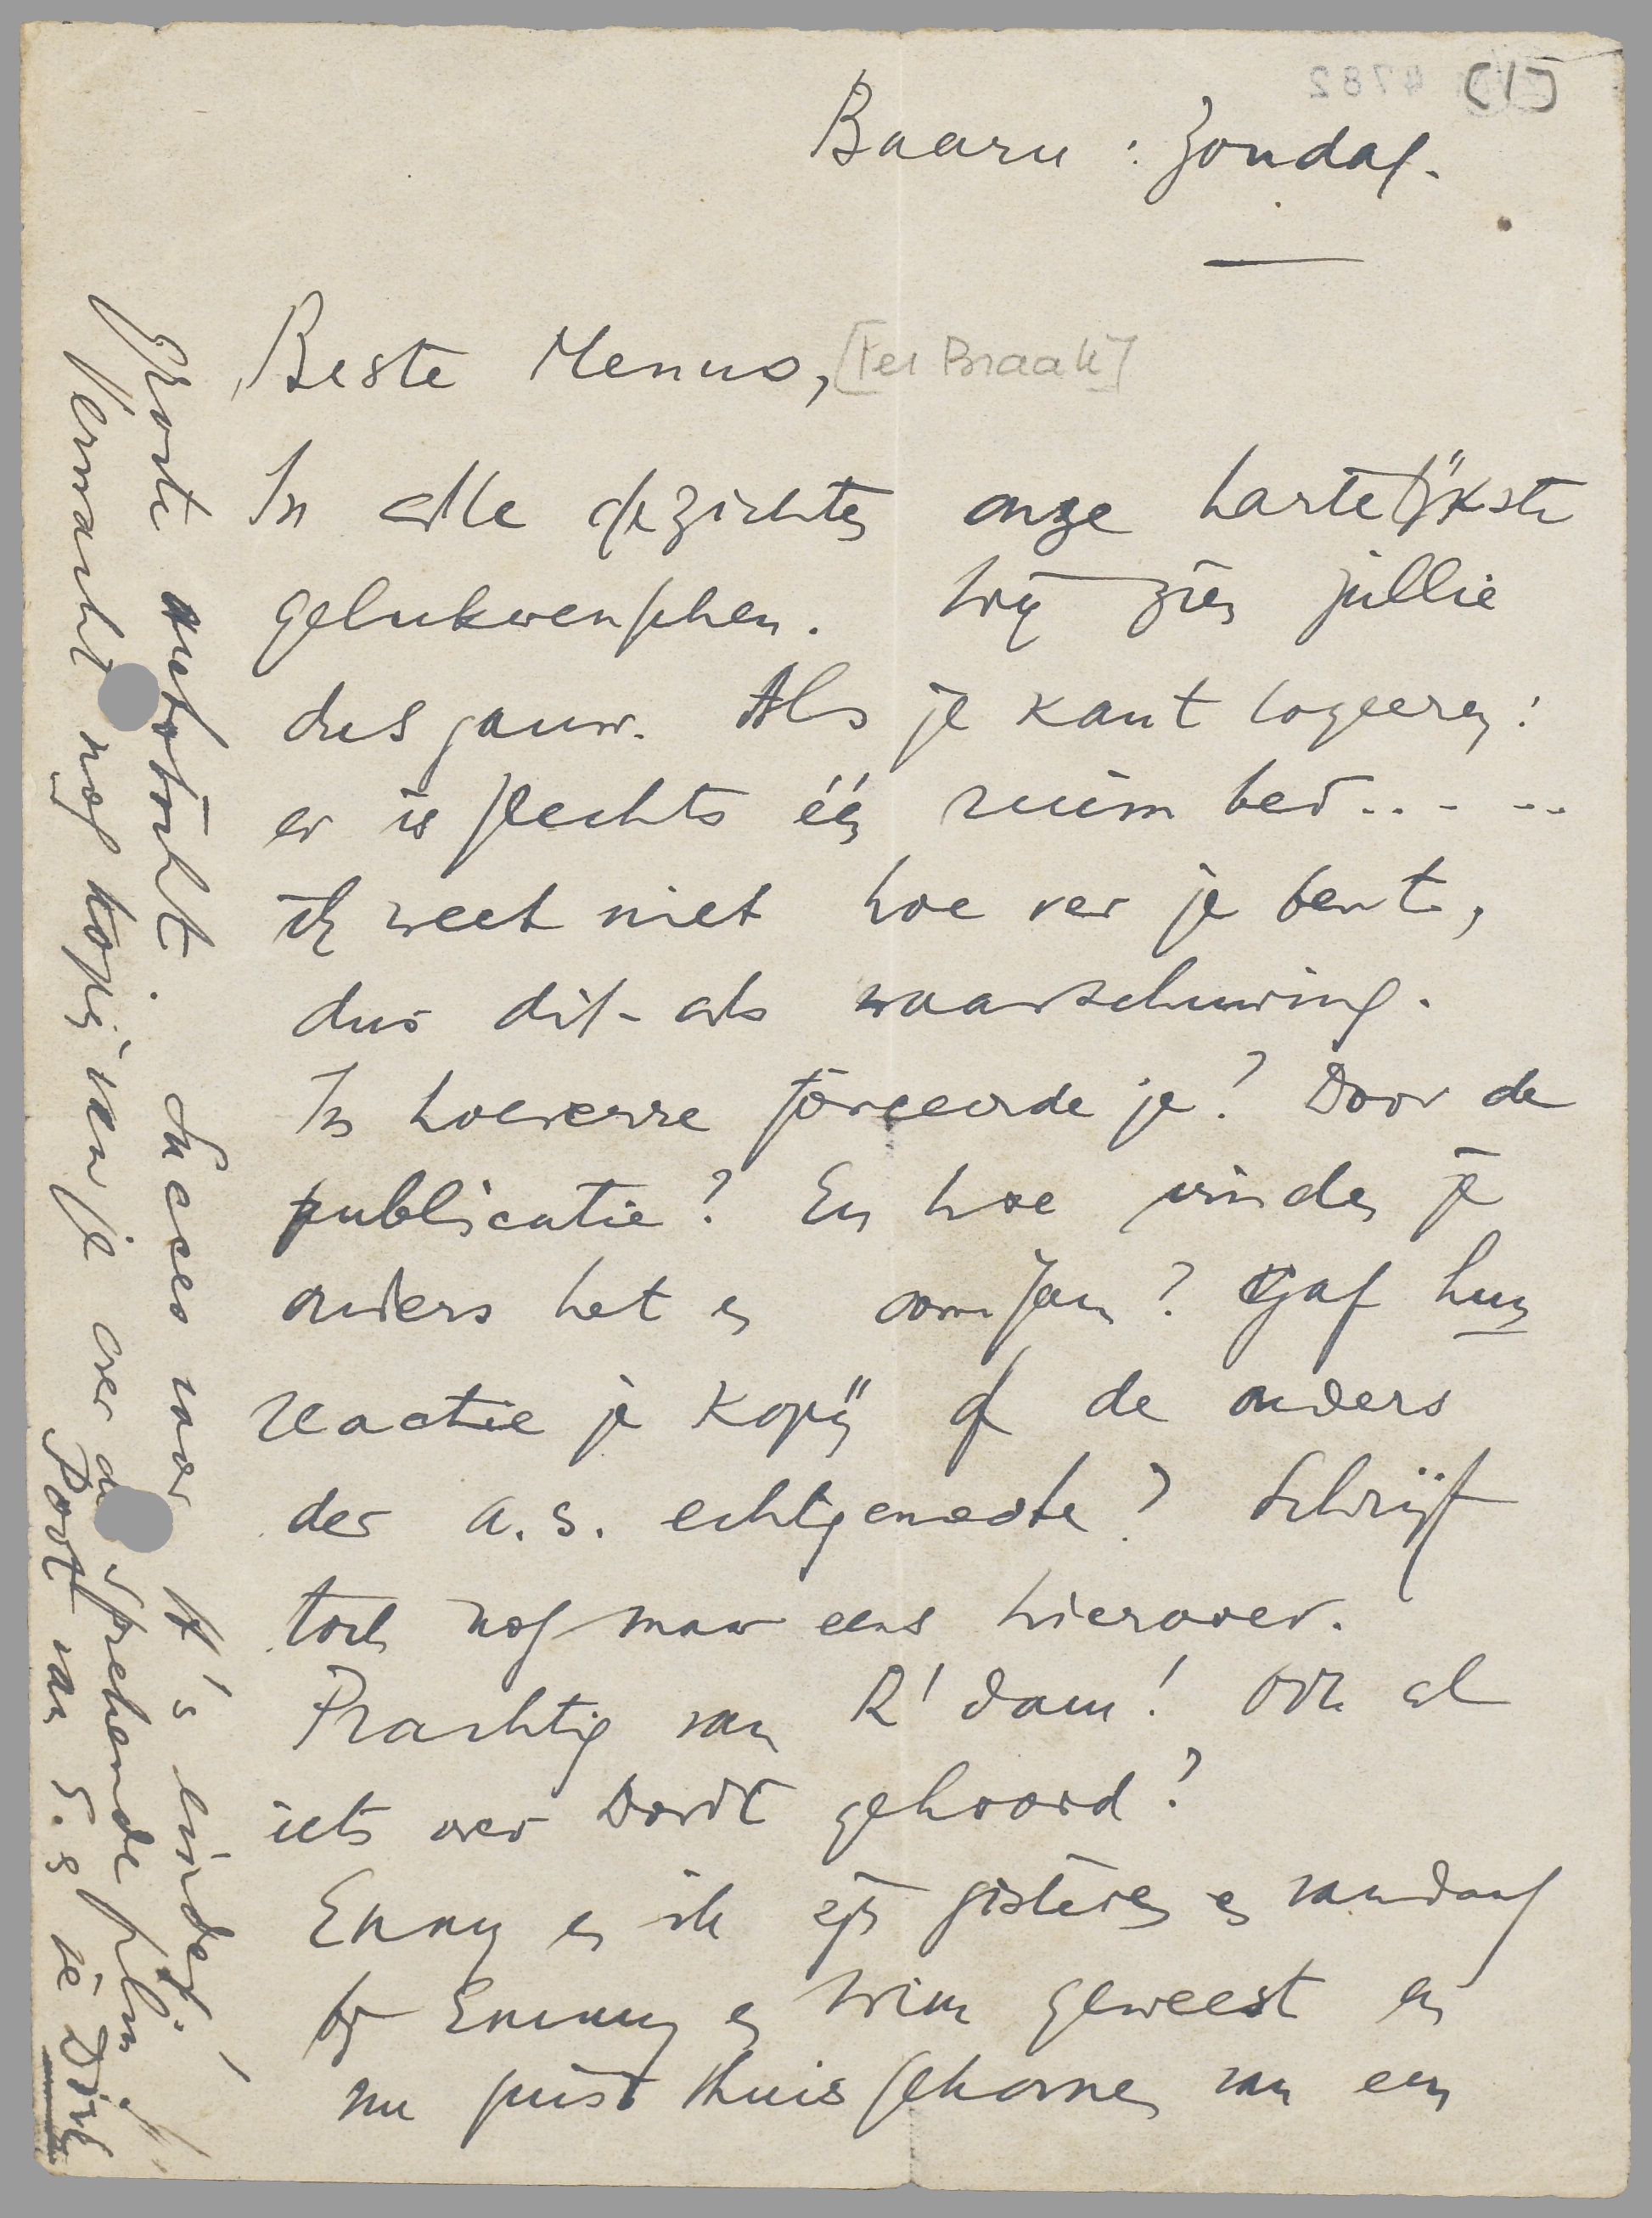 (1)
4782
Baarn : Zondag.
Beste Menno, [ter Braak]
In alle opzichten onze hartelijkste
gelukwenschen. Wij zien jullie
dus gauw. Als je kant logeeren:
er is slechts één ruim bed.. - --
ik weet niet hoe ver je bent,
dus dit - als waarschuwing.
In hoeverre forceerde je? Door de
publicatie? En hoe vinden je
ouders het en oom Jan? Gaf hun
reactie je kopij of de ouders
der a.s. echtgenoote? Schrijf
toch nog maar eens hierover.
Prachtig van R'dam! Ook al
iets over Dordt gehoord?
Enny en ik zijn gisteren en vandaag
bij Emmy en Wim geweest en
nu juist thuis gekomen van een
groote autotocht. Succes voor A's einde!
Verwacht nog kopij van je over de sprekende film
Poot van 5. en de Dirk